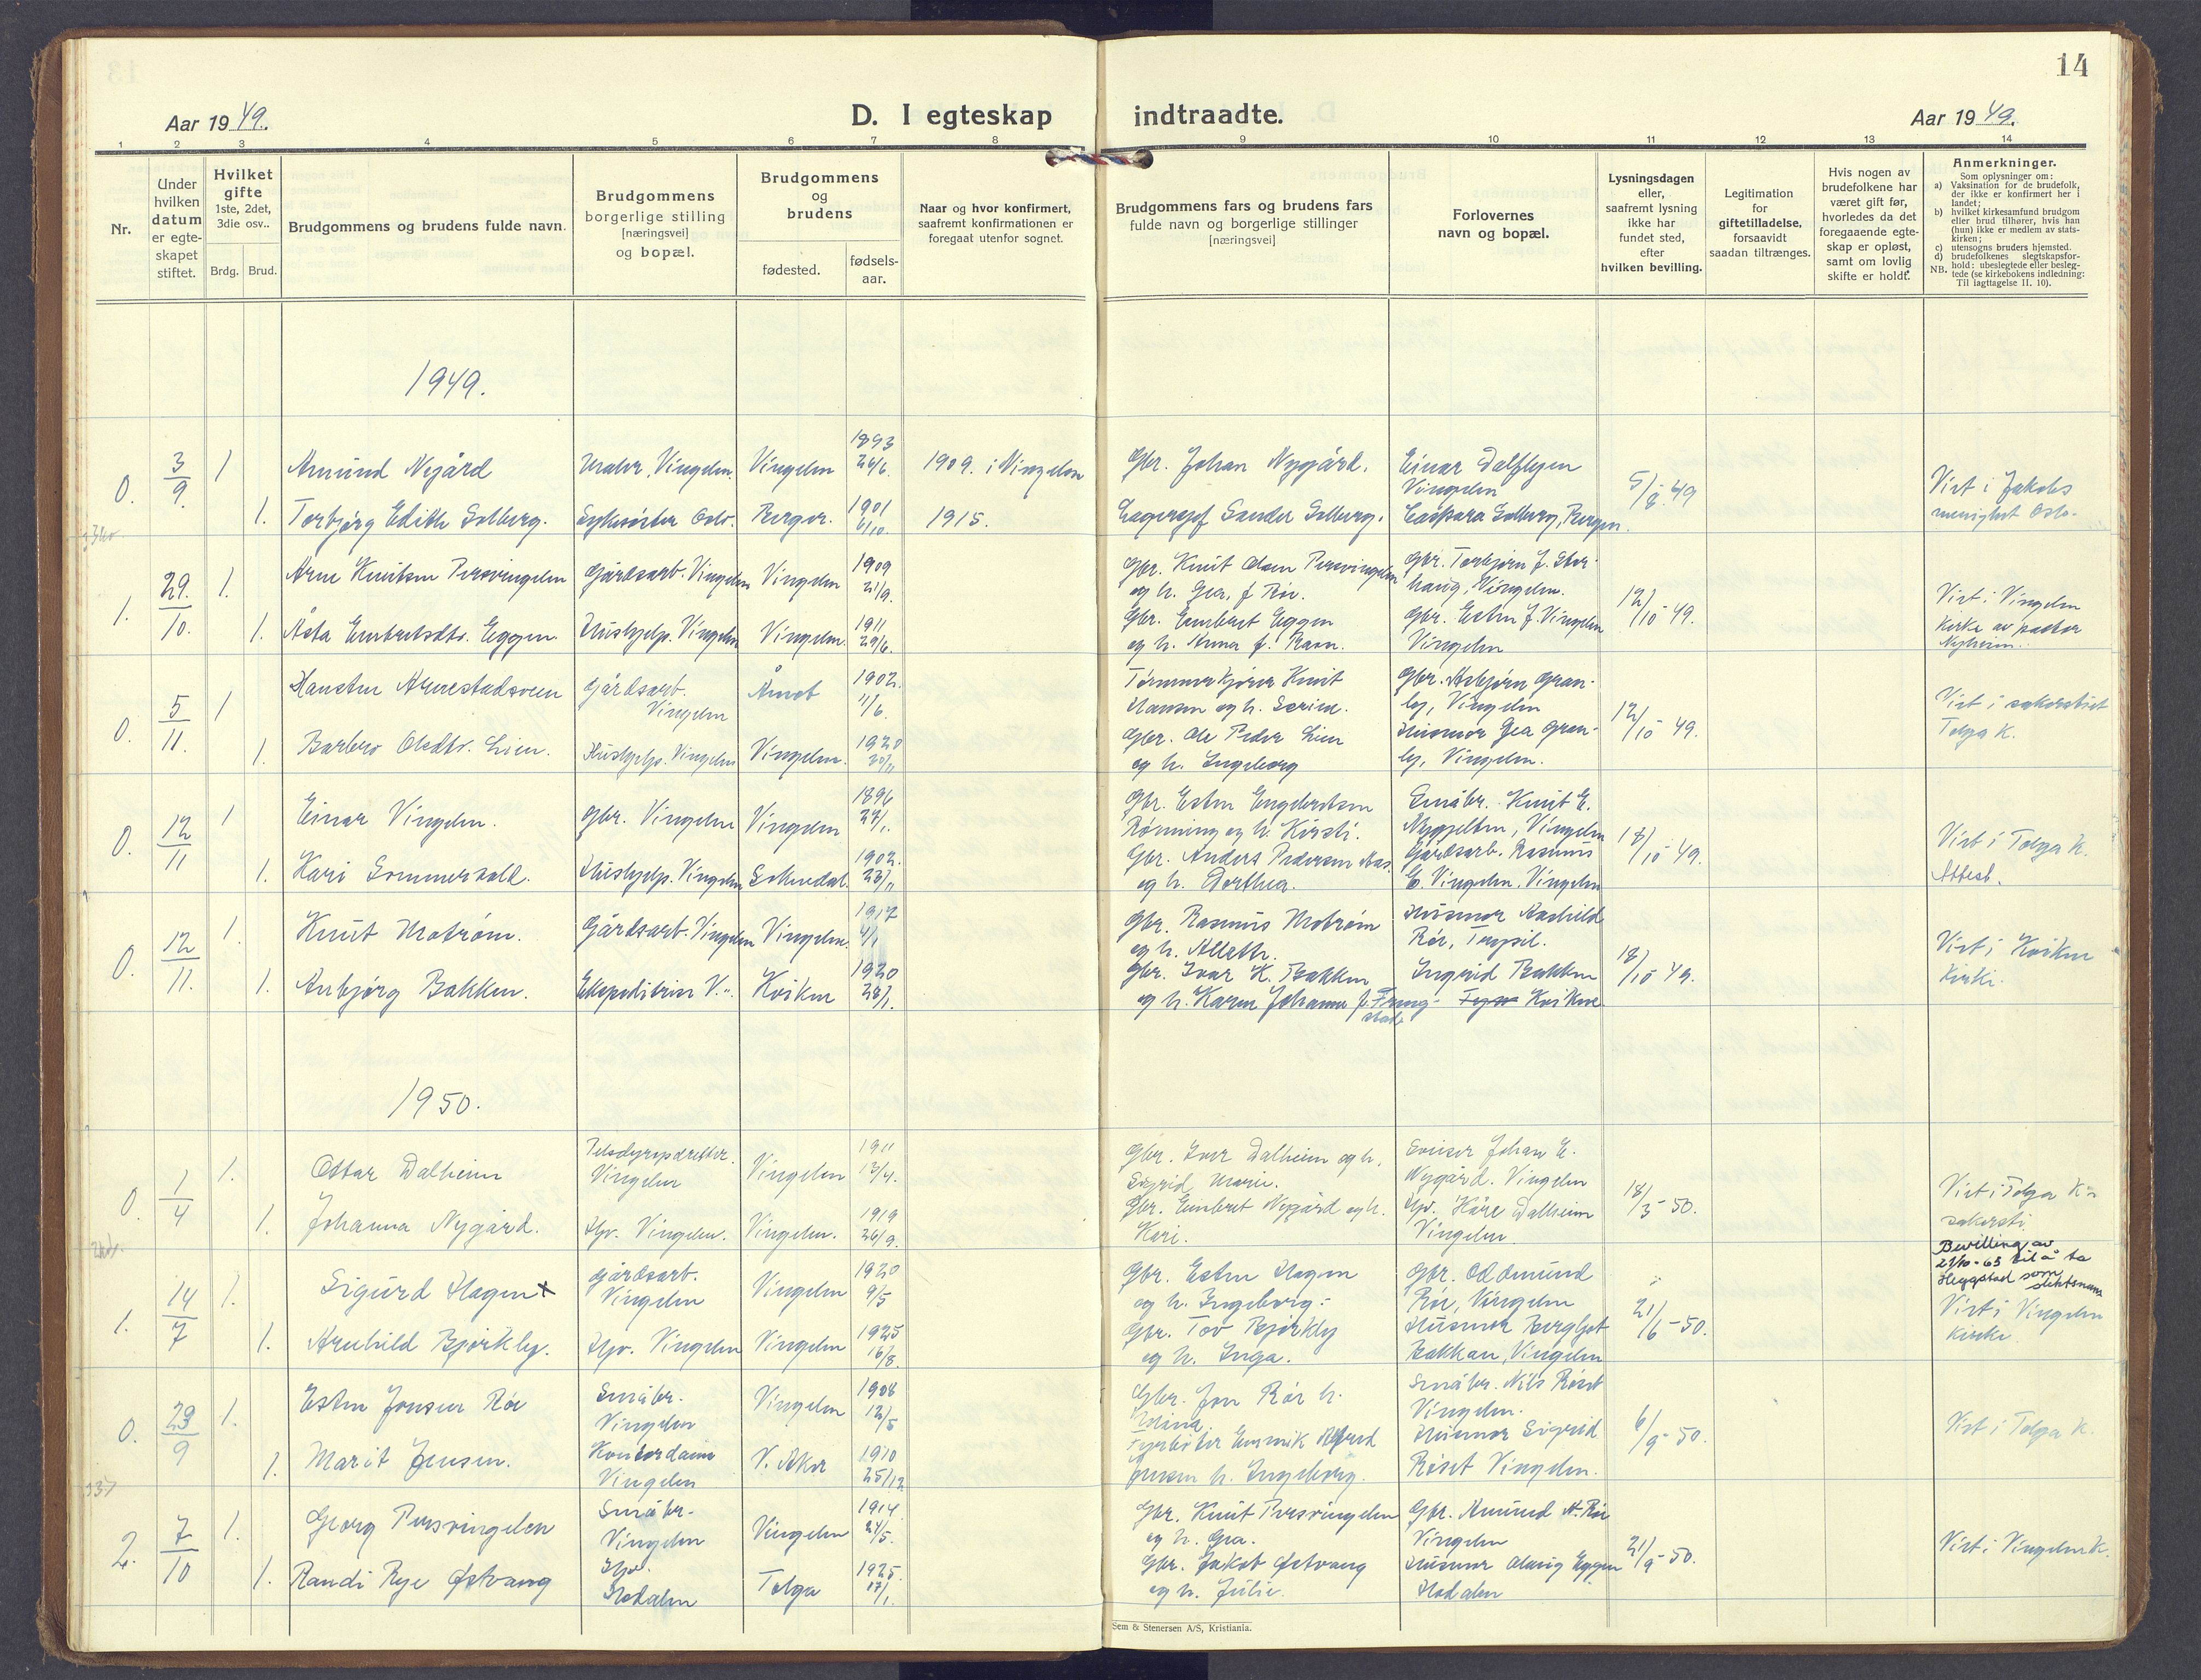 14
Aar 1949.
D. I egteskap indtraadte.
Aar 1949.
1 2 3 4 5 6 7 8 9 10 11 12 13 14
Nr.
Under hvilken datum er egte-skapet stiftet.
Hvilket gifte 1ste, 2det, 3die osv..
Brdg. Brud.
Brudgommens og brudens fulde navn.
Brudgommens borgerlige stilling [næringsvei] og bopæl.
Brudgommens og brudens
fødested.
fødsels-aar.
Naar og hvor konfirmert, saafremt konfirmationen er foregaat utenfor sognet.
Brudgommens fars og brudens fars fulde navn og borgerlige stillinger [næringsvei]
Forlovernes navn og bopæl.
Lysningsdagen eller, saafremt lysning ikke har fundet sted, efter hvilken bevilling.
Legitimation for giftetilladelse, forsaavidt saadan tiltrænges.
Hvis nogen av brudefolkene har været gift før, hvorledes da det foregaaende egte-skap er opløst, samt om lovlig skifte er holdt.
Anmerkninger.
Som oplysninger om:
a) Vaksination for de brudefolk, der ikke er konfirmert her i landet;
b) hvilket kirkesamfund brudgom eller brud tilhører, hvis han (hun) ikke er medlem av stats-kirken;
c) utensogns bruders hjemsted.
d) brudefolkenes slegtskapsfor-hold: ubeslegtede eller besleg-
NB. tede (se kirkebokens indledning: Til iagttagelse II. 10).
1949.
0. 3/9 1 Amund Nygård
Maler, Vingelen. Vingelen 1893 24/6. 1909. i Vingelen
Gbr. Johan Nygård.
Einar Dalflyen Vingelen
5/8-49
Vist i Jakobs menighet Oslo.
1. Torbjørg Edith Solberg.
Sykesøster Oslo. Bergen. 1901 6/10. 1915.
Lagersjef Sander Solberg.
Caspara Solberg, Bergen.
1. 29./10. 1. Arne Knutsen Persvingelen
Gårdsarb. Vingelen Vingelen 1909 21/9.
Gbr. Knut Olsen Persvingelen og h. Gea, f. Rør.
Gbr. Torbjørn J. Stor-haug, Vingelen.
12/10-49.
Vist i Vingelen kirke av pastor Nyheim.
1. Åsta Embretsdtr. Eggen.
Hushjelp. Vingelen Vingelen. 1911 29/6.
Gbr. Embret Eggen og h. Anna f. Ravn.
Gbr. Esten J. Vingelen Vingelen
0. 5/11. 1 Hansten Arnestadsveen
Gårdsarb. Vingelen Åmot 1902. 11/6.
Tømmerkjører Knut Hansen og h. Serine.
Gbr. Asbjørn Gran-ly, Vingelen
12/10-49.
Vist i sakristiet Tolga K.
1. Barbro Olsdtr. Lien.
Hushjelp. Vingelen Vingelen. 1920 30/11
Gbr. Ole Peder Lien og h. Ingeborg
Husmor Gea Gran-ly, Vingelen.
0. 12/11 1 Einar Vingelen.
Gbr. Vingelen Vingelen 1896 27/1.
Gbr. Esten Engebretsen Rønning og h. Kirsti.
Småbr. Knut E. Nygjelten, Vingelen
18/10-49.
Vist i Tolga K. Attest.
1. Kari Sommervold.
Hushjelp. Vingelen Soknedal. 1902. 23/11
Gbr. Anders Pedersen Aas. og h. Dorthea.
Gårdsarb. Rasmus E. Vingelen, Vingelen
0. 12/11. 1. Knut Motrøm.
Gårdsarb. Vingelen Vingelen. 1917 4/1
Gbr. Rasmus Motrøm og h. Allette.
Husmor Aashild Rør,
18/10 49.
Vist i Kvikne kirke.
1. Anbjørg Bakken.
Ekspeditrise V. Kvikne 1920 28/1.
Gbr. Ivar K. Bakken og h. Karen Johanna f. Frengstad
Ingrid Bakken Kvikne
1950.
0. 1/4 1. Ottar Dalheim
Pelsdyroppdretter. Vingelen Vingelen 1911 13/4.
Gbr. Iver Dalheim og h. Sigrid Marie.
Johan E. Nygård. Vingelen
18/3-50.
Vist i Tolga K. sakristi
1. Johanna Nygård.
Hv. Vingelen. Vingelen. 1919 26/9.
Gbr. Embret Nygård og h. Kari.
Kåre Dalheim Vingelen
1. 14/7 1. Sigurd Hagen x
Gårdsarb. Vingelen Vingelen 1920 9/5
Gbr. Esten Hagen og h. Ingeborg.
Gbr. Oddmund Rør, Vingelen
21/6-50.
Bevilling av 21/10-65 til å ta Heggstad som slektsnavn
Vist i Vingelen kirke.
1. Arnhild Bjørkly.
Hv. Vingelen Vingelen 1925 16/8.
Gbr. Tov Bjørkly og h. Inga.
Husmor Bergljot Bakkan, Vingelen
0. 23/9 1. Esten Jonsen Rør
Småbr. Vingelen Vingelen 1908 12/5
Gbr. Jon Rør h.
Småbr. Nils Røset Vingelen.
6/9-50.
Vist i Tolga K.
1. Marit Jensen.
Kontordame Vingelen V. Aker 1910 25/12
Fyrbøter Jensen h. Ingeborg.
Husmor Sigrid Røset Vingelen.
2. 7/10 1. Georg Persvingelen
Småbr. Vingelen Vingelen 1914 24/5.
Gbr. Knut Persvingelen og h. Gea.
Gbr. Amund A. Rør Vingelen
21/9-50.
Vist i Vingelen K.
1. Randi Rye Østvang
Hv. Hodalen Tolga 1925. 17/1.
Gbr. Jakob Østvang og h. Julie.
Husmor Olaug Eggen Hodalen
Sem & Stenersen A/S, Kristiania.